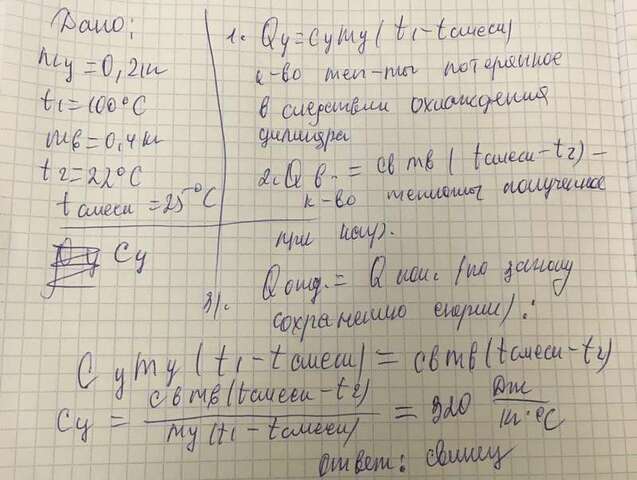 Дано:
mц = 0,2кг
t1 = 100°C
mв = 0,4 кг
t2 = 22°C
tсмеси = 25°C
Cц
1. Qц = Cцmц (t1 - tсмеси)
к-во теп-ты потерянное
в следствии охлаждения
цилиндра
2. Qв. = cв mв (tсмеси - t2) -
к-во теплоты полученное
при нагр.
3). Qотд. = Qпол. (по закону
сохранению енергии) :
Cцmц (t1 - tсмеси) = cвmв (tсмеси - t2)
Cц = cвmв (tсмеси - t2) / mц (t1 - tсмеси) = 320 Дж / кг·°C
Ответ: свинец